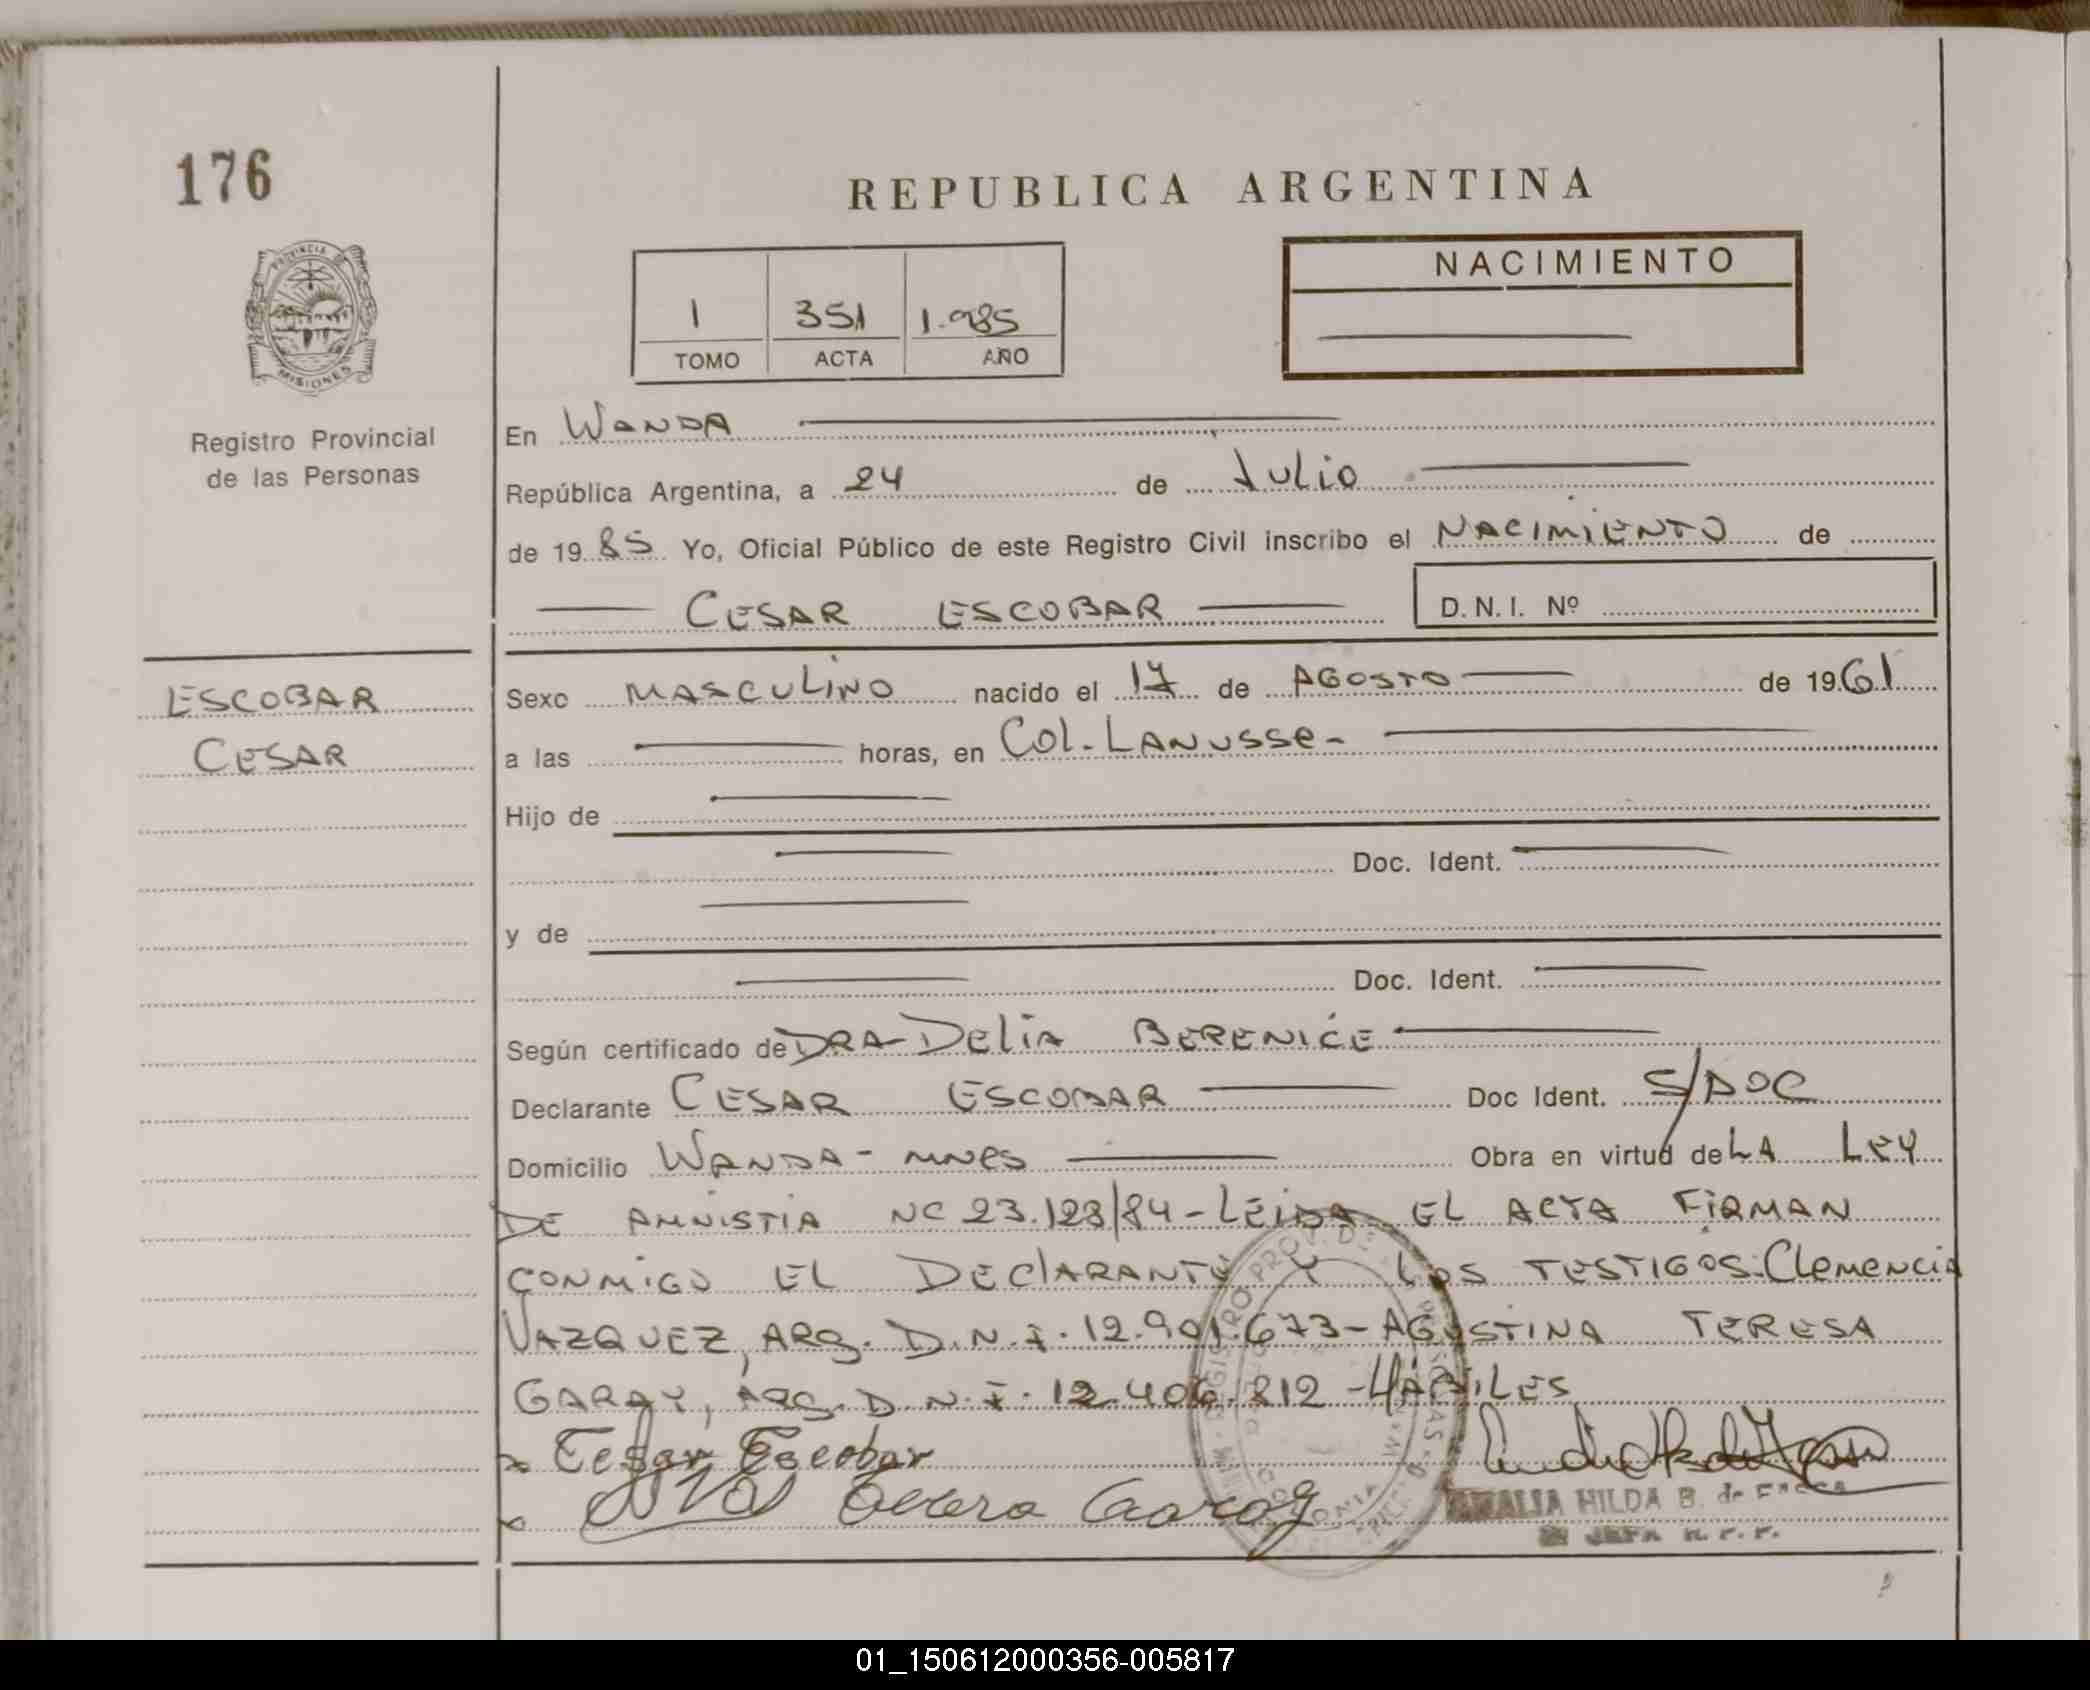 176
REPUBLICA ARGENTINA
PROVINCIA DE
MISIONES
Registro Provincial
de las Personas
1 351 1.985
TOMO ACTA AÑO
NACIMIENTO
En WANDA
República Argentina, a 24 de JULIO
de 1985 Yo, Oficial Público de este Registro Civil inscribo el NACIMIENTO de
CESAR ESCOBAR D.N.I. Nº
ESCOBAR
CESAR
Sexo MASCULINO nacido el 17 de AGOSTO de 1961
a las horas, en COL-LANUSSE-
Hijo de
Doc. Ident.
y de
Doc. Ident.
Según certificado de DRA-DELIA BERENICE
Declarante CESAR ESCOBAR Doc Ident. S/DOC
Domicilio WANDA- MNES Obra en virtud de LA LEY
DE AMNISTIA Nº 23.128/84-LEIDA EL ACTA FIRMAN
CONMIGO EL DECLARANTE Y LOS TESTIGOS: CLEMENCIA
VAZQUEZ, ARG. D.N.I. 12.901.673-AGUSTINA TERESA
GARAY, ARG. D.N.I. 12.406.212-HÁBILES
Cesar Escobar
AMALIA HILDA B. de
JEFA R.P.P.
01_150612000356-005817